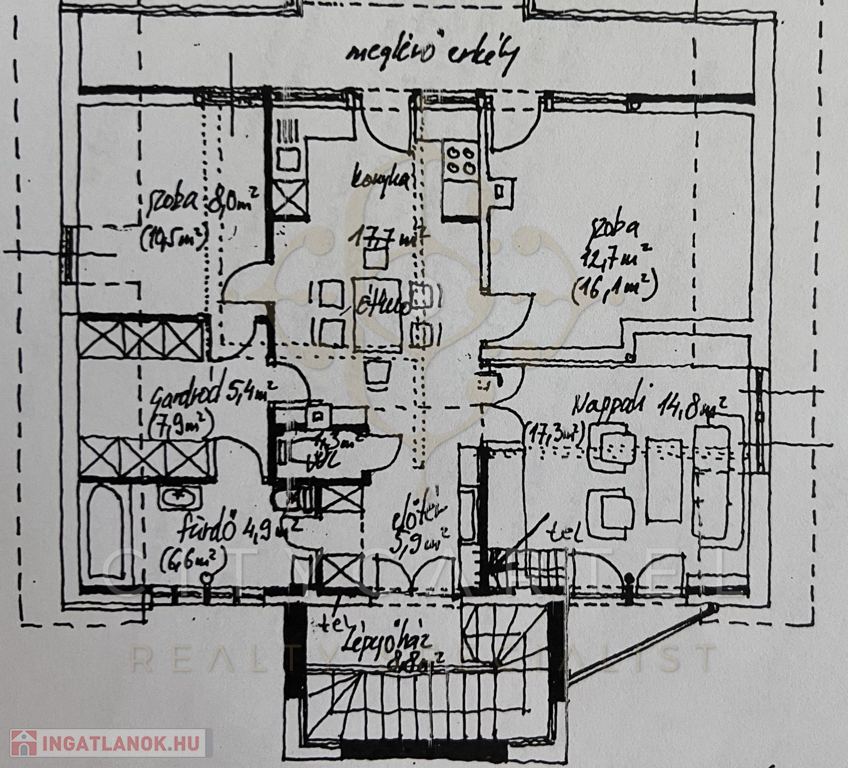 meglévő erkély
szoba 8,0 m²
(10,5 m²)
konyha
17,7 m²
étkező
szoba
12,7 m²
(16,1 m²)
Gardrób 5,4 m²
(7,9 m²)
Nappali 14,8 m²
(17,3 m²)
1,3 m²
fürdő 4,9 m²
(6,6 m²)
előtér
5,9 m²
tel
tel
CITYCARTEL
REALTY SPECIALIST
Lépcsőház
8,8 m²
INGATLANOK.HU